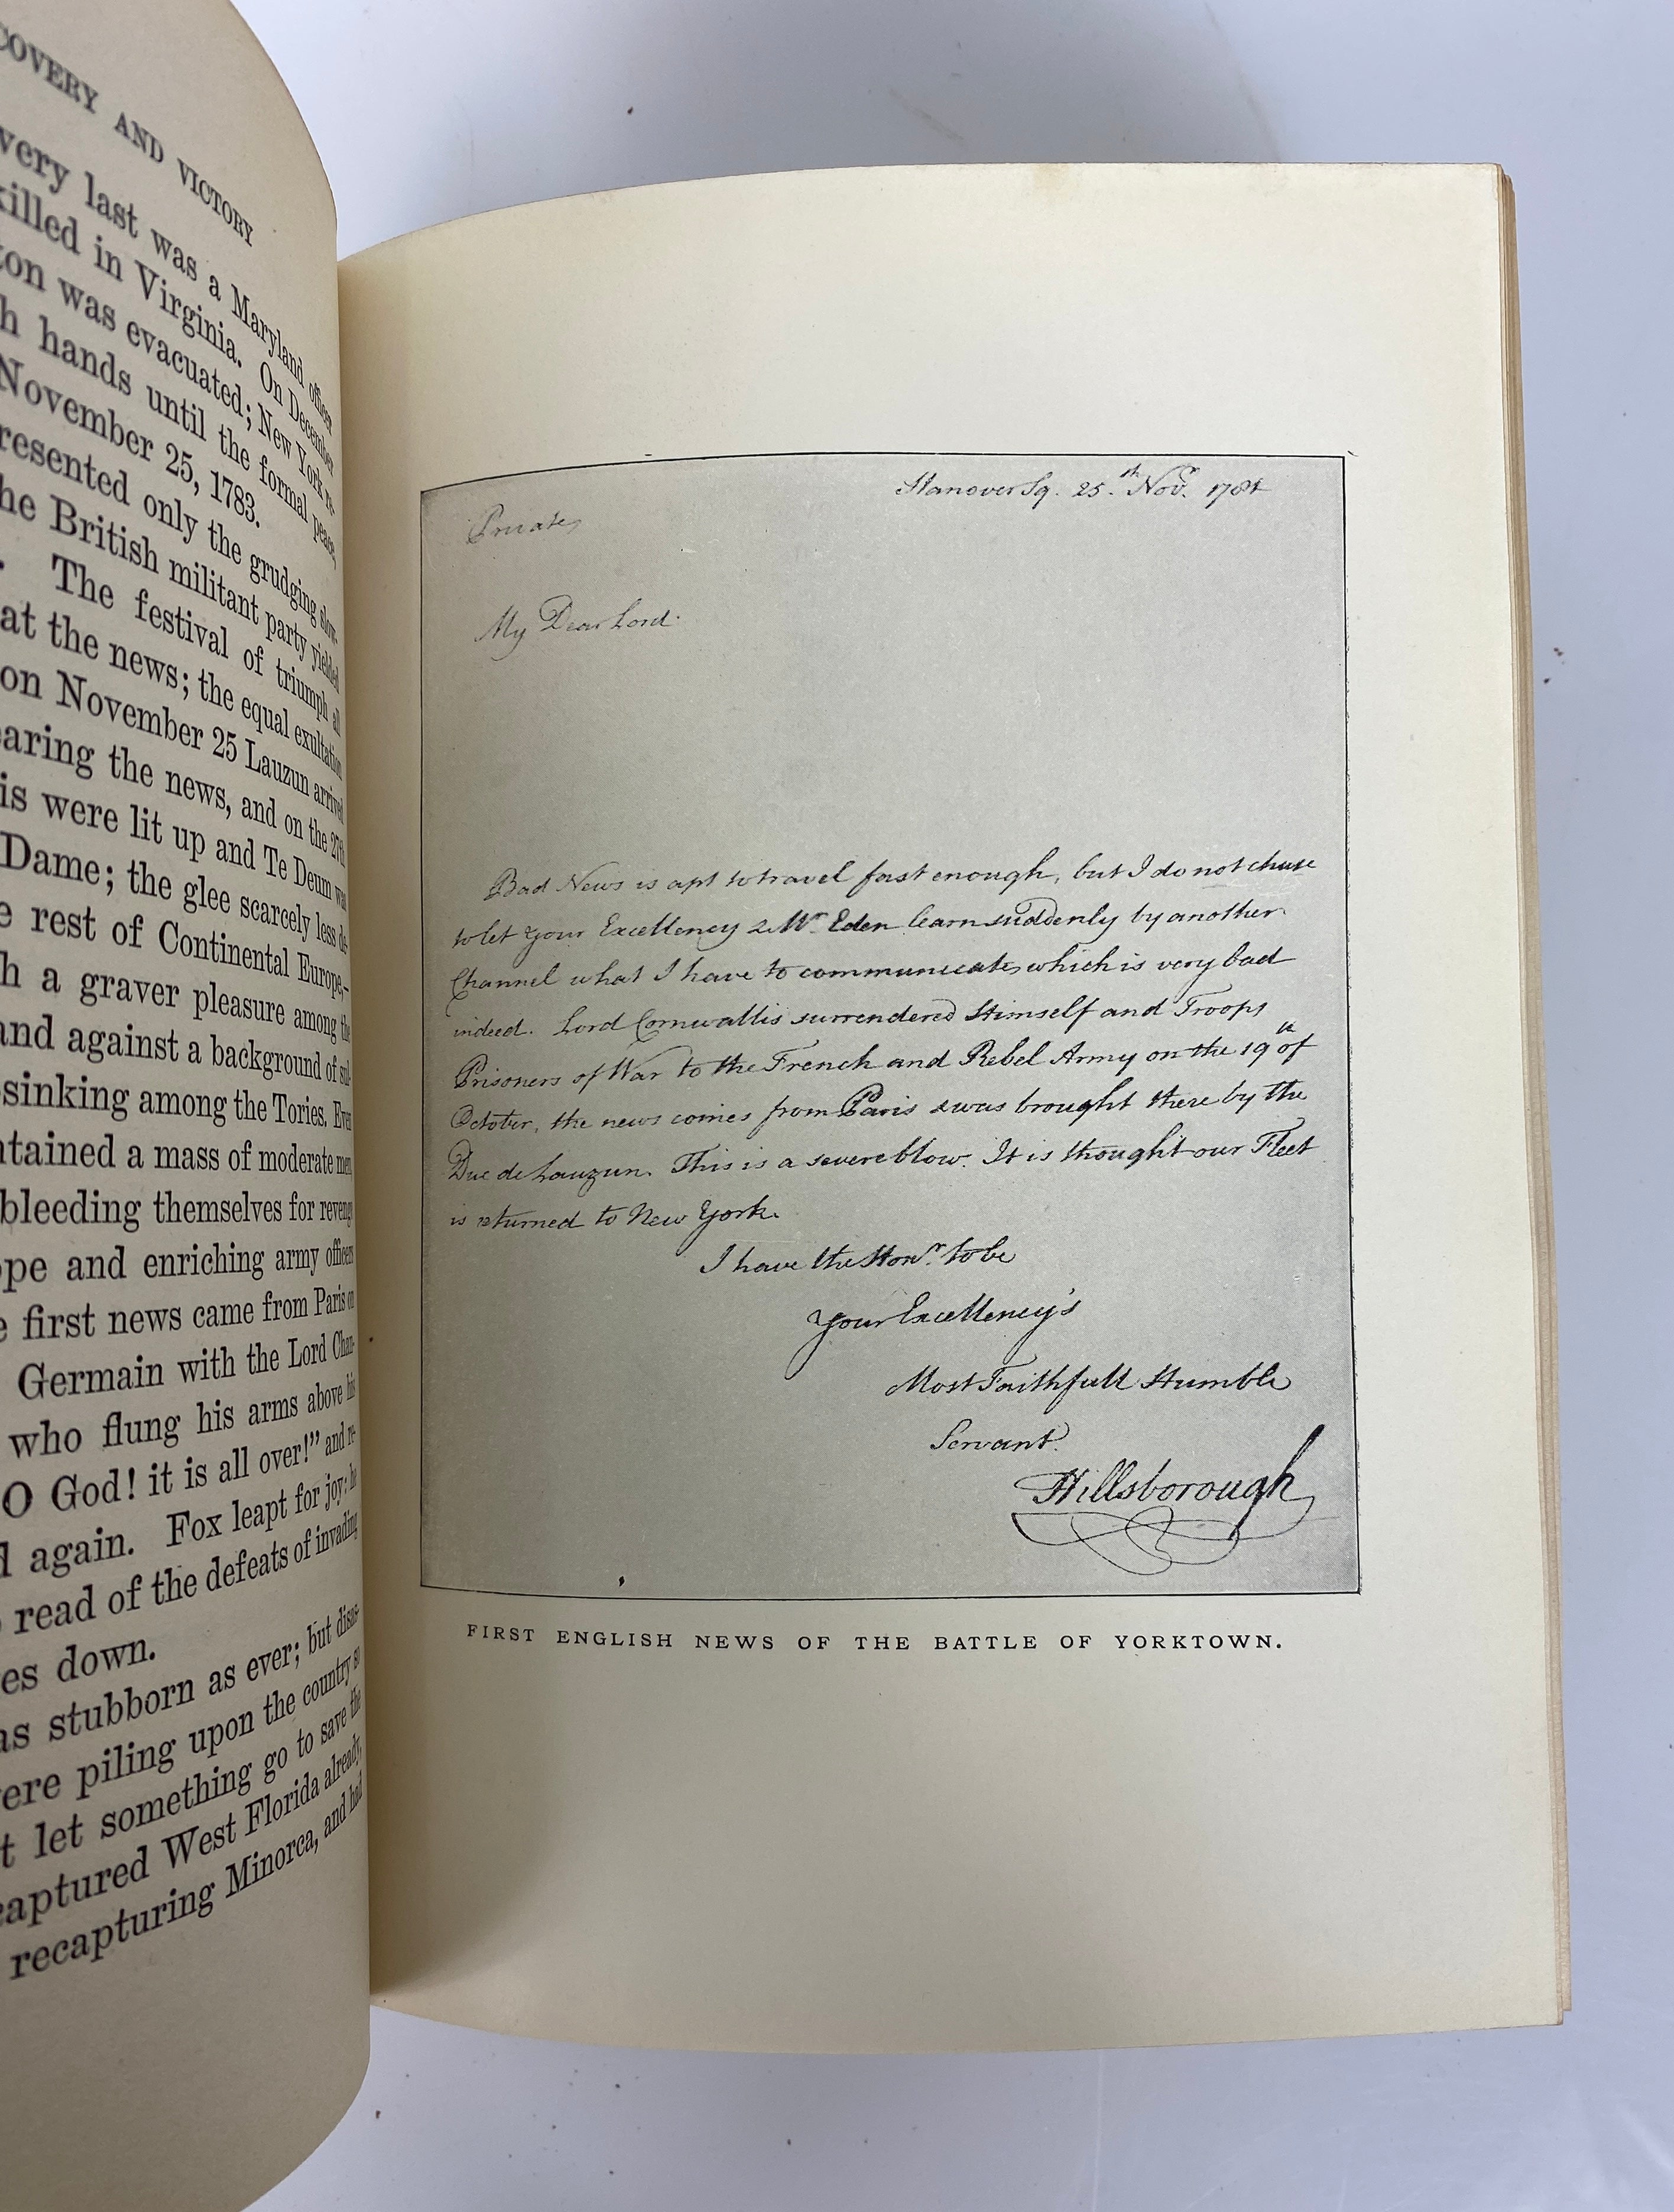 COVERY AND VICTORY
very last was a Maryland officer
killed in Virginia. On December
ton was evacuated; New York re-
h hands until the formal peace,
November 25, 1783.
resented only the grudging slow-
he British militant party yielded
. The festival of triumph all
at the news; the equal exultation
on November 25 Lauzun arrived
earing the news, and on the 27th
is were lit up and Te Deum was
Dame; the glee scarcely less de-
e rest of Continental Europe,—
h a graver pleasure among the
and against a background of sul-
sinking among the Tories. Even
ntained a mass of moderate men
bleeding themselves for revenge
ope and enriching army officers
e first news came from Paris on
Germain with the Lord Chan-
who flung his arms above his
O God! it is all over!" and re-
d again. Fox leapt for joy: he
o read of the defeats of invading
es down.
as stubborn as ever; but disas-
were piling upon the country so
t let something go to save the
captured West Florida already,
recapturing Minorca, and had
Hanover Sq. 25.th Novr. 1781
Private,
My Dear Lord.
Bad News is apt to travel fast enough, but I do not chuse
to let your Excellency & Mr Eden learn suddenly by another
Channel what I have to communicate, which is very bad
indeed. Lord Cornwallis surrendered Himself and Troops
Prisoners of War to the French and Rebel Army on the 19th of
October, the news comes from Paris & was brought there by the
Duc de Lauzun. This is a severe blow. It is thought our Fleet
is returned to New York.
I have the Honr. to be
Your Excellency's
Most Faithfull Humble
Servant.
Hillsborough
FIRST ENGLISH NEWS OF THE BATTLE OF YORKTOWN.